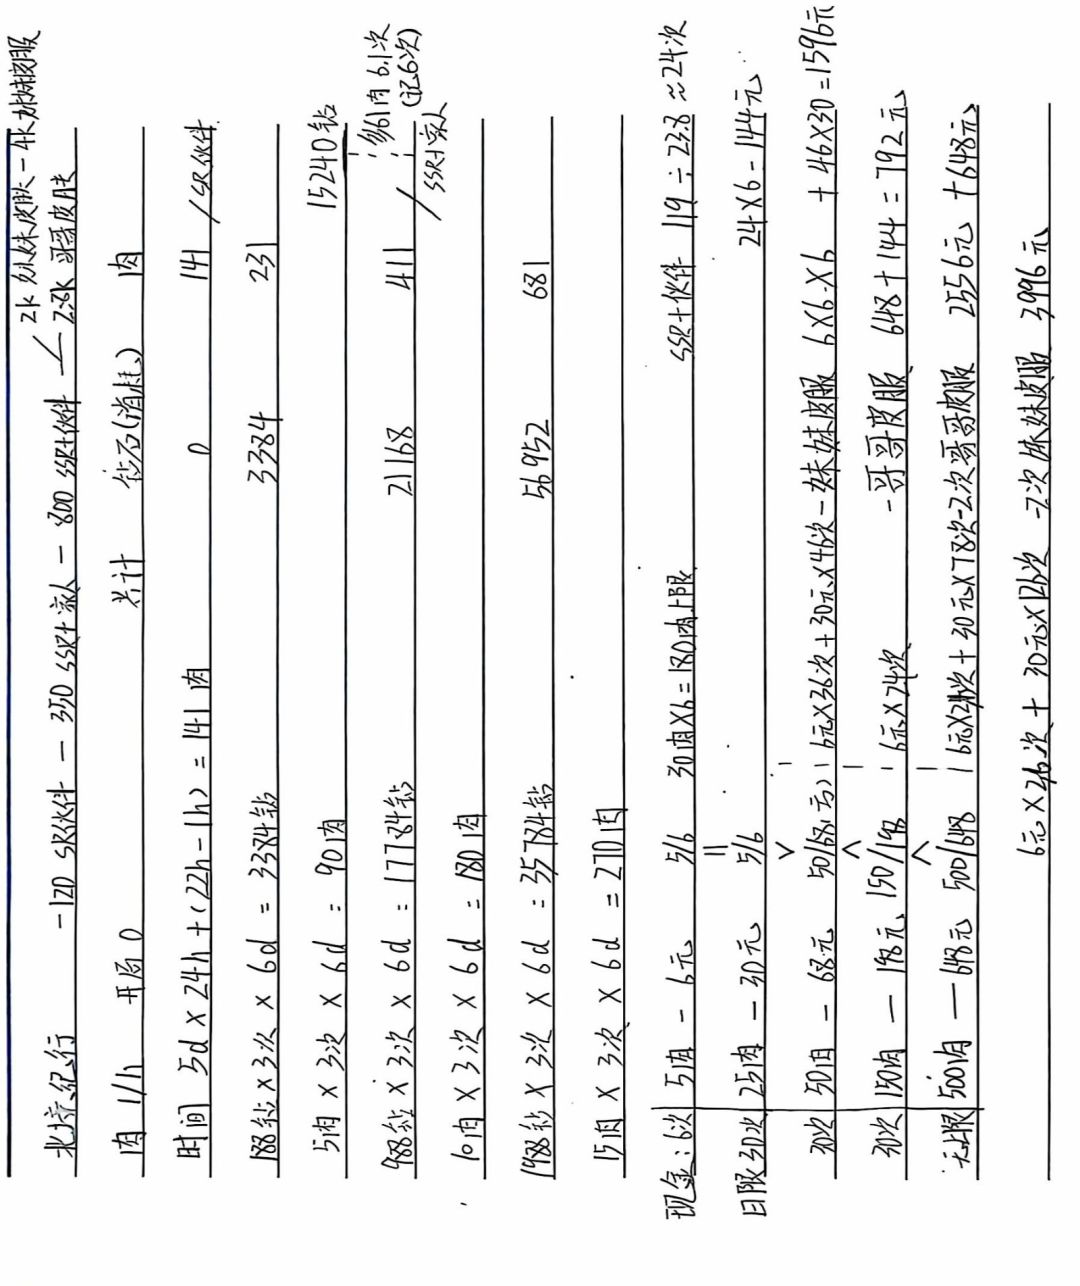 2k 妹妹皮肤 - 4k 妹妹皮肤
北境纪行 - 120 SR伙伴 - 350 SSR+家人 - 800 SSR+伙伴 2.8k 哥哥皮肤
肉 1/h 开局 0 共计 钻石(消耗) 肉
时间 5d × 24h + (22h - 1h) = 141 肉 0 141 / SR伙伴
188钻 × 3次 × 6d = 3384钻 3384 231
5肉 × 3次 × 6d = 90肉 15240钻
988钻 × 3次 × 6d = 17784钻 21168 411 / SSR+家人 多61肉 6.1次 (记6次)
10肉 × 3次 × 6d = 180肉
1988钻 × 3次 × 6d = 35784钻 56952 681
15肉 × 3次 × 6d = 270肉
现金: 6次 5肉 - 6元 5/6 30肉×6=180肉上限 SSR+伙伴 119 ÷ 23.8 ≈ 24次
日限 30次 25肉 - 30元 5/6 24×6=144元
30次 50肉 - 68元 50/68 6元×36次+30元×46次 - 妹妹皮服 6×6×6 + 46×30 = 1596元
30次 150肉 - 198元 150/198 6元×24次 - 哥哥皮服 648+144=792元
无上限 500肉 - 648元 500/648 6元×24次+30元×78次-2次哥哥皮服 2556元 +648元
6元×26次 + 30元×126次 -2次妹妹皮服 3996元